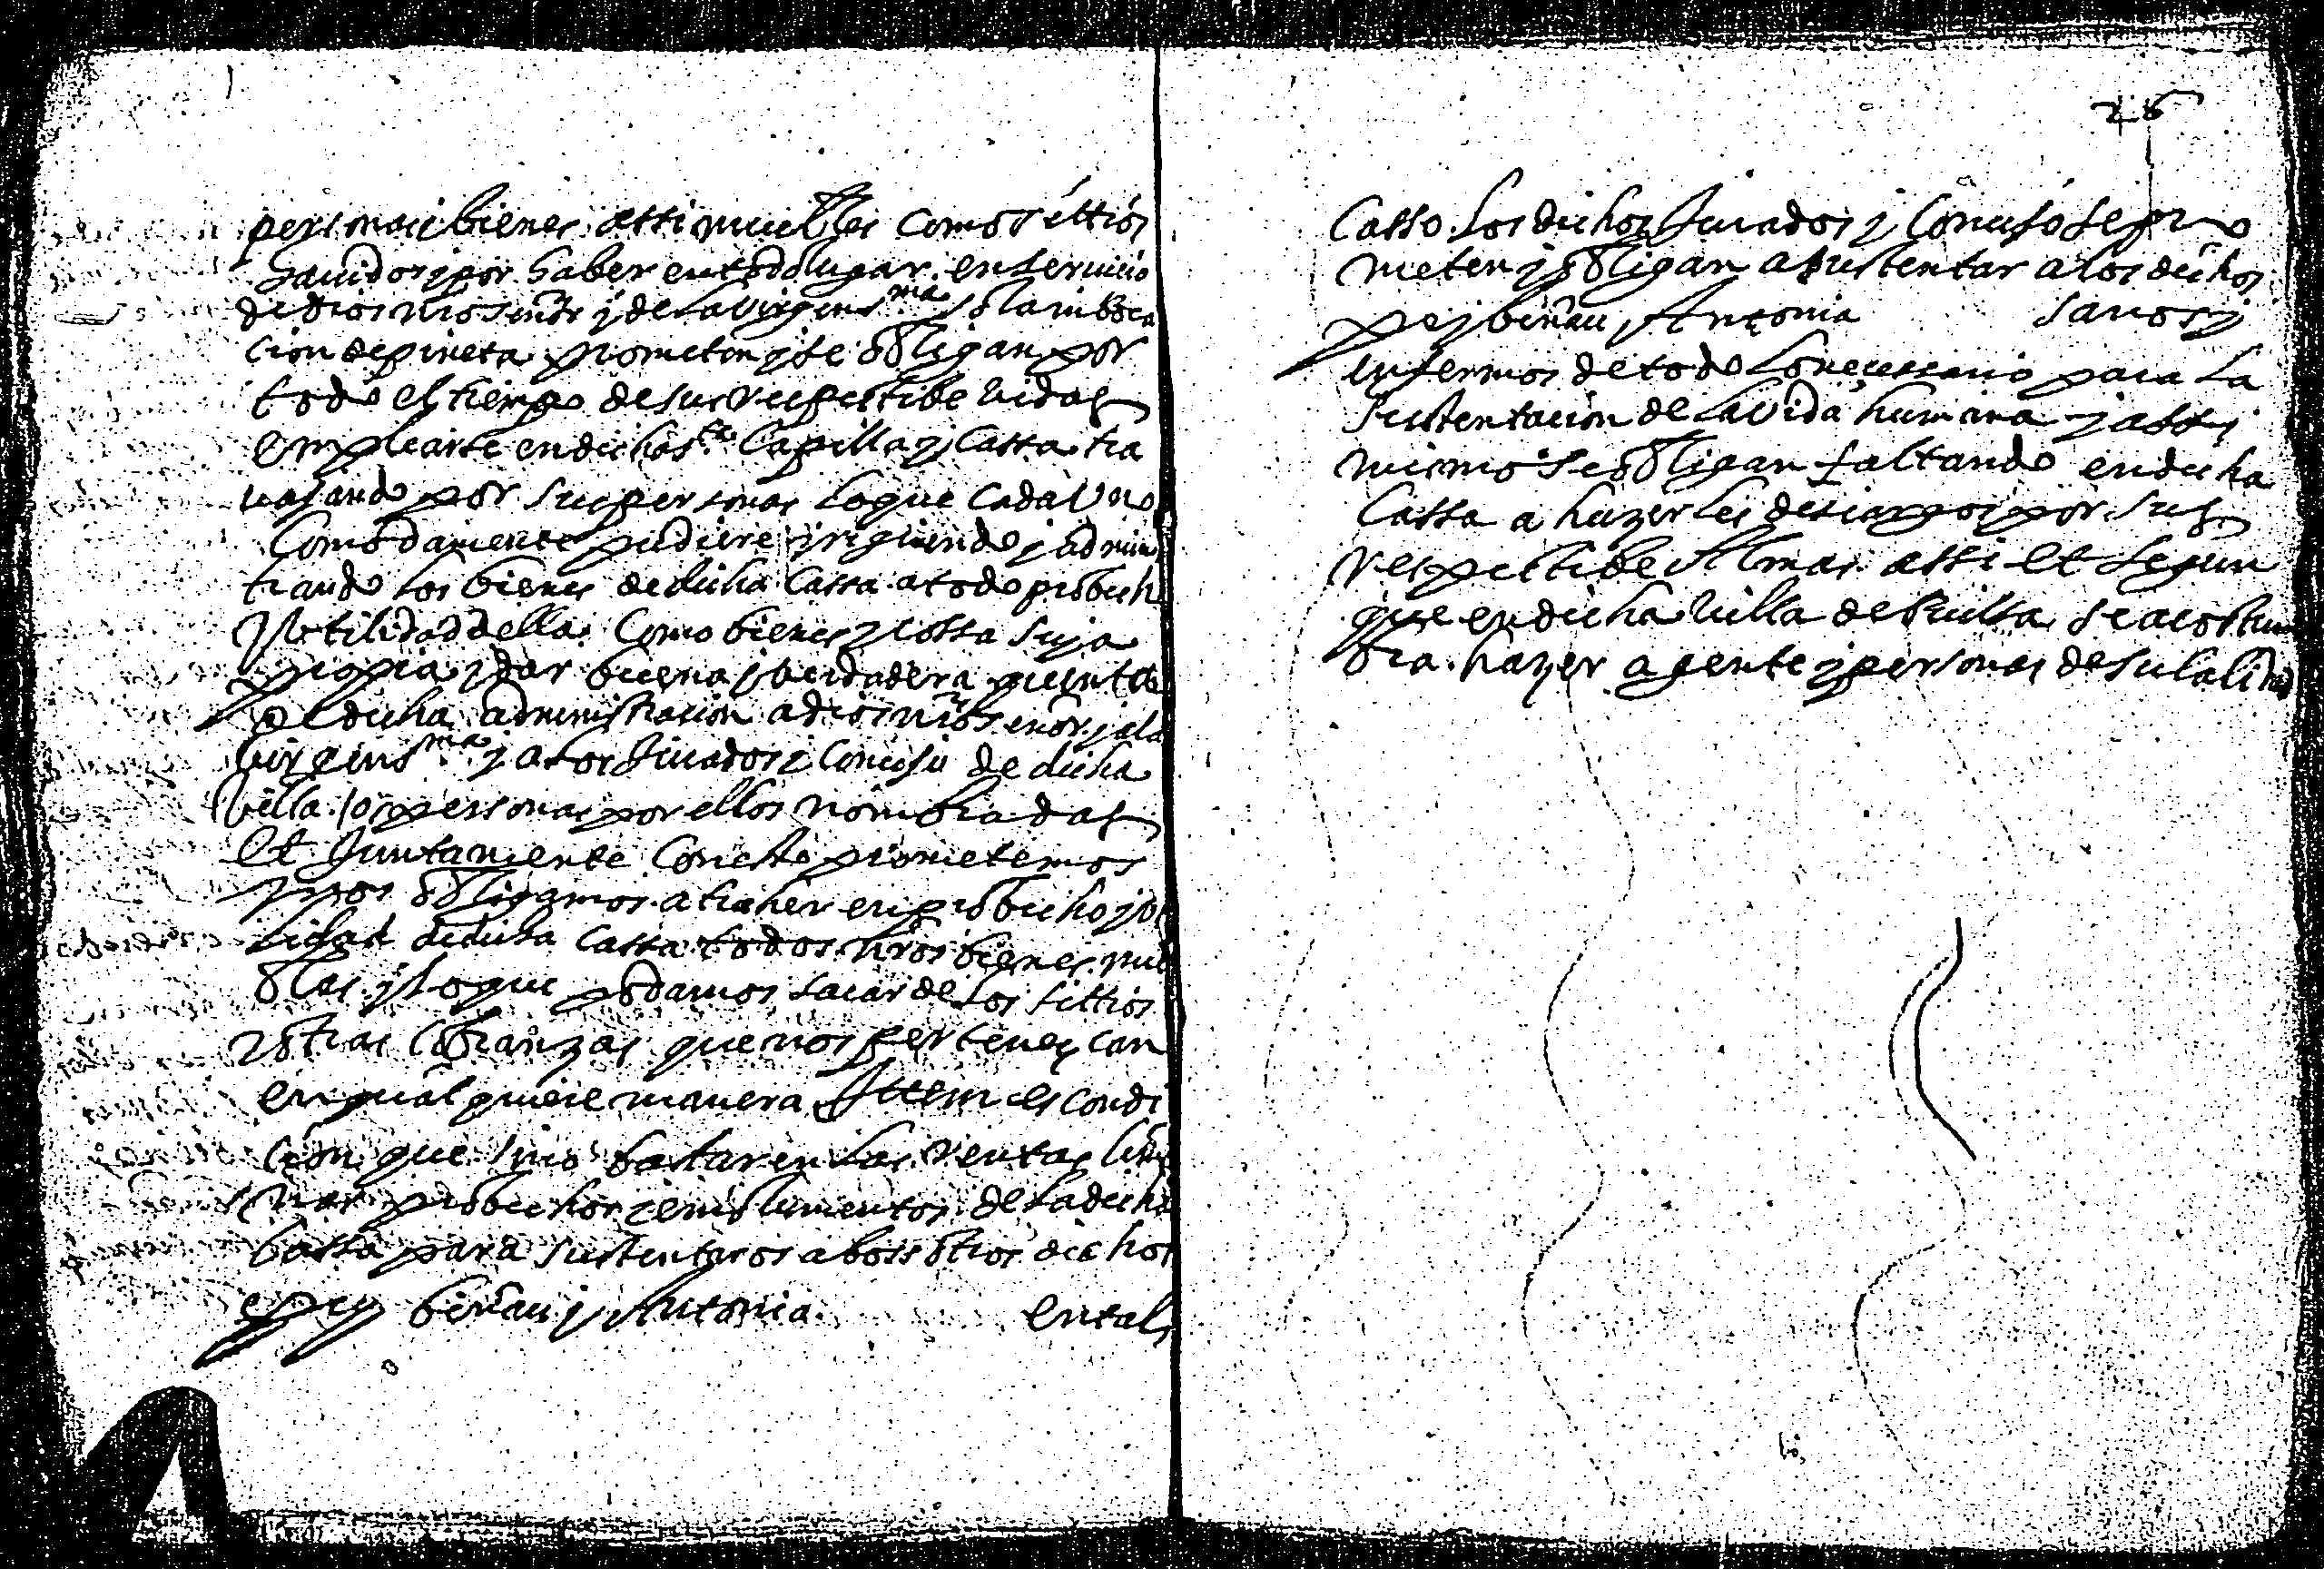 personas i bienes assi muebles como sittios
hauidos y por haber en todo lugar en seruicio
de dios nro señor y de la Virgen s.ma so la inboca
cion de pineta prometen y se obligan por
todo el tiempo de sus respectibe vidas
emplearse en dicha s.ta Capilla y Cassa tra
uajando por sus personas lo que cada Vno
Comodamente pudiere y riguiendo y admini
trando los bienes de dicha Cassa a todo probecho
y Vtilidad della Como bienes y cossa suya
propia y dar buena y berdadera quenta
de dicha administracion a dios nro señor y a la
birgen s.ma y a los Jurados i Concejo de dicha
Villa / o personas por ellos nombradas
Et Juntamente Con esto prometemos
y nos obligamos a traher en probecho y vt
lidad de dicha Cassa todos nros bienes mue
bles y lo que podamos sacar de los sittios
y otras Cobranzas que nos pertenezcan
en qual quiere manera Ittem es condi
cion que sino bastaren las rentas lim
nas probechos y emolumentos de la dicha
Cassa para sustentaros a bossotros dichos
Pey bernau y Antonia en tal
26
Casso los dichos Jurados y Concejo se pro
meten y obligan a sustentar a los dichos
Pey bernau, Antonia sanos y
enfermos de todo lo necessario para la
sustentacion de la vida humana y assi
mismo se obligan faltando en dicha
Cassa a hazerles descargos por sus
respectibe Almas assi et segun
que en dicha Villa de Bielsa se acostum
bra hazer a gente y personas de su calidad